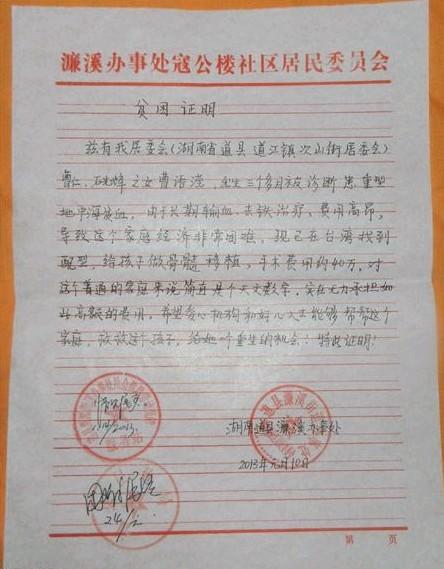 濂溪办事处寇公楼社区居民委员会
贫困证明
兹有我居委会(湖南省道县道江镇次山街居委会)
之女曹语滢,出生三个月被诊断患重型
地中海贫血,由于长期输血、去铁治疗,费用高昂,
导致这个家庭经济非常困难,现已在台湾找到
配型,给孩子做骨髓移植,手术费用约40万,对
这个普通的家庭来说简直是个天文数字,实在无力承担如
此高额的费用,希望爱心机构和好心人士能够帮帮这个
家庭,救救这个孩子,给她一个重生的机会!特此证明!
情况属实.
湖南道县濂溪办事处
2013年元月10日
情况属实
24/12
第 页